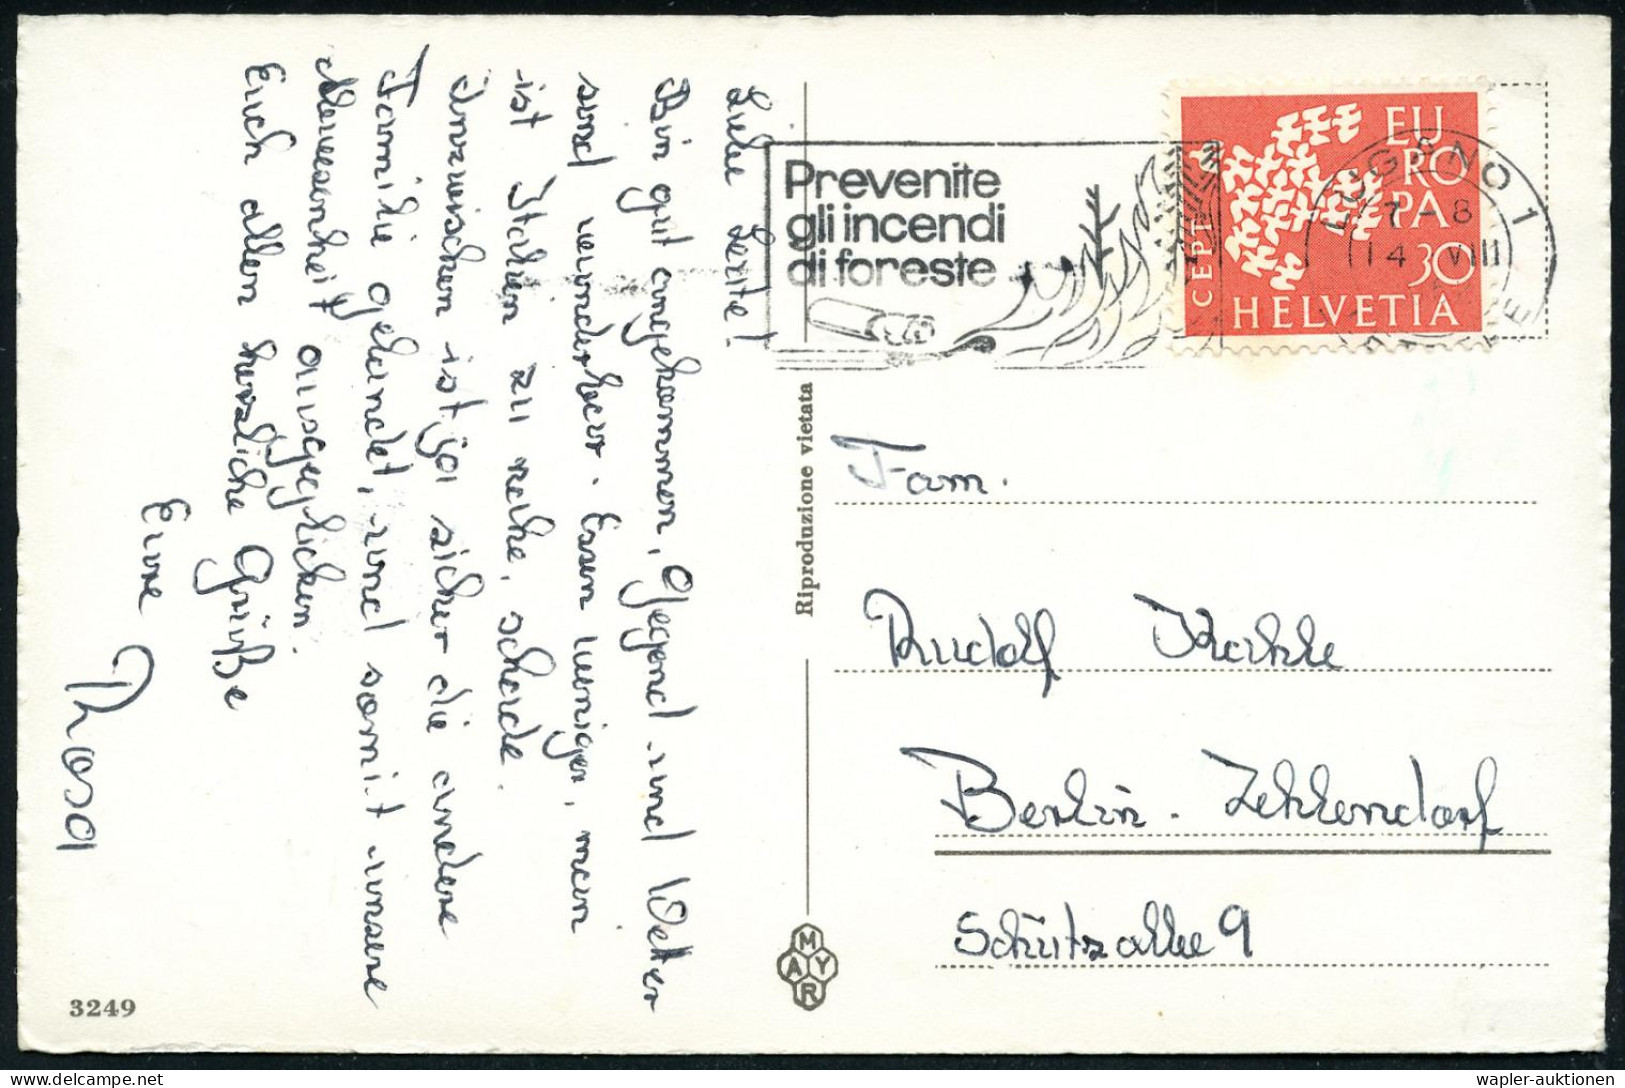 Liebe Leute!
Bin gut angekommen, Gegend und Wetter
sind wunderbar. Essen weniger, man
ist Italien zu nahe, schade.
Inzwischen ist ja sicher die andere
Familie gelandet, und somit unsere
Abwesenheit ausgeglichen.
Euch allen herzliche Grüße
Eure
Rosa
3249
Riproduzione vietata
MAYR
Prevenite
gli incendi
di foreste
LUGANO 1
7-8
14 VIII
EU
RO
PA
30
CEPT
HELVETIA
Fam.
Rudolf
Berlin-Zehlendorf
Schützallee 9
wapler-auktionen